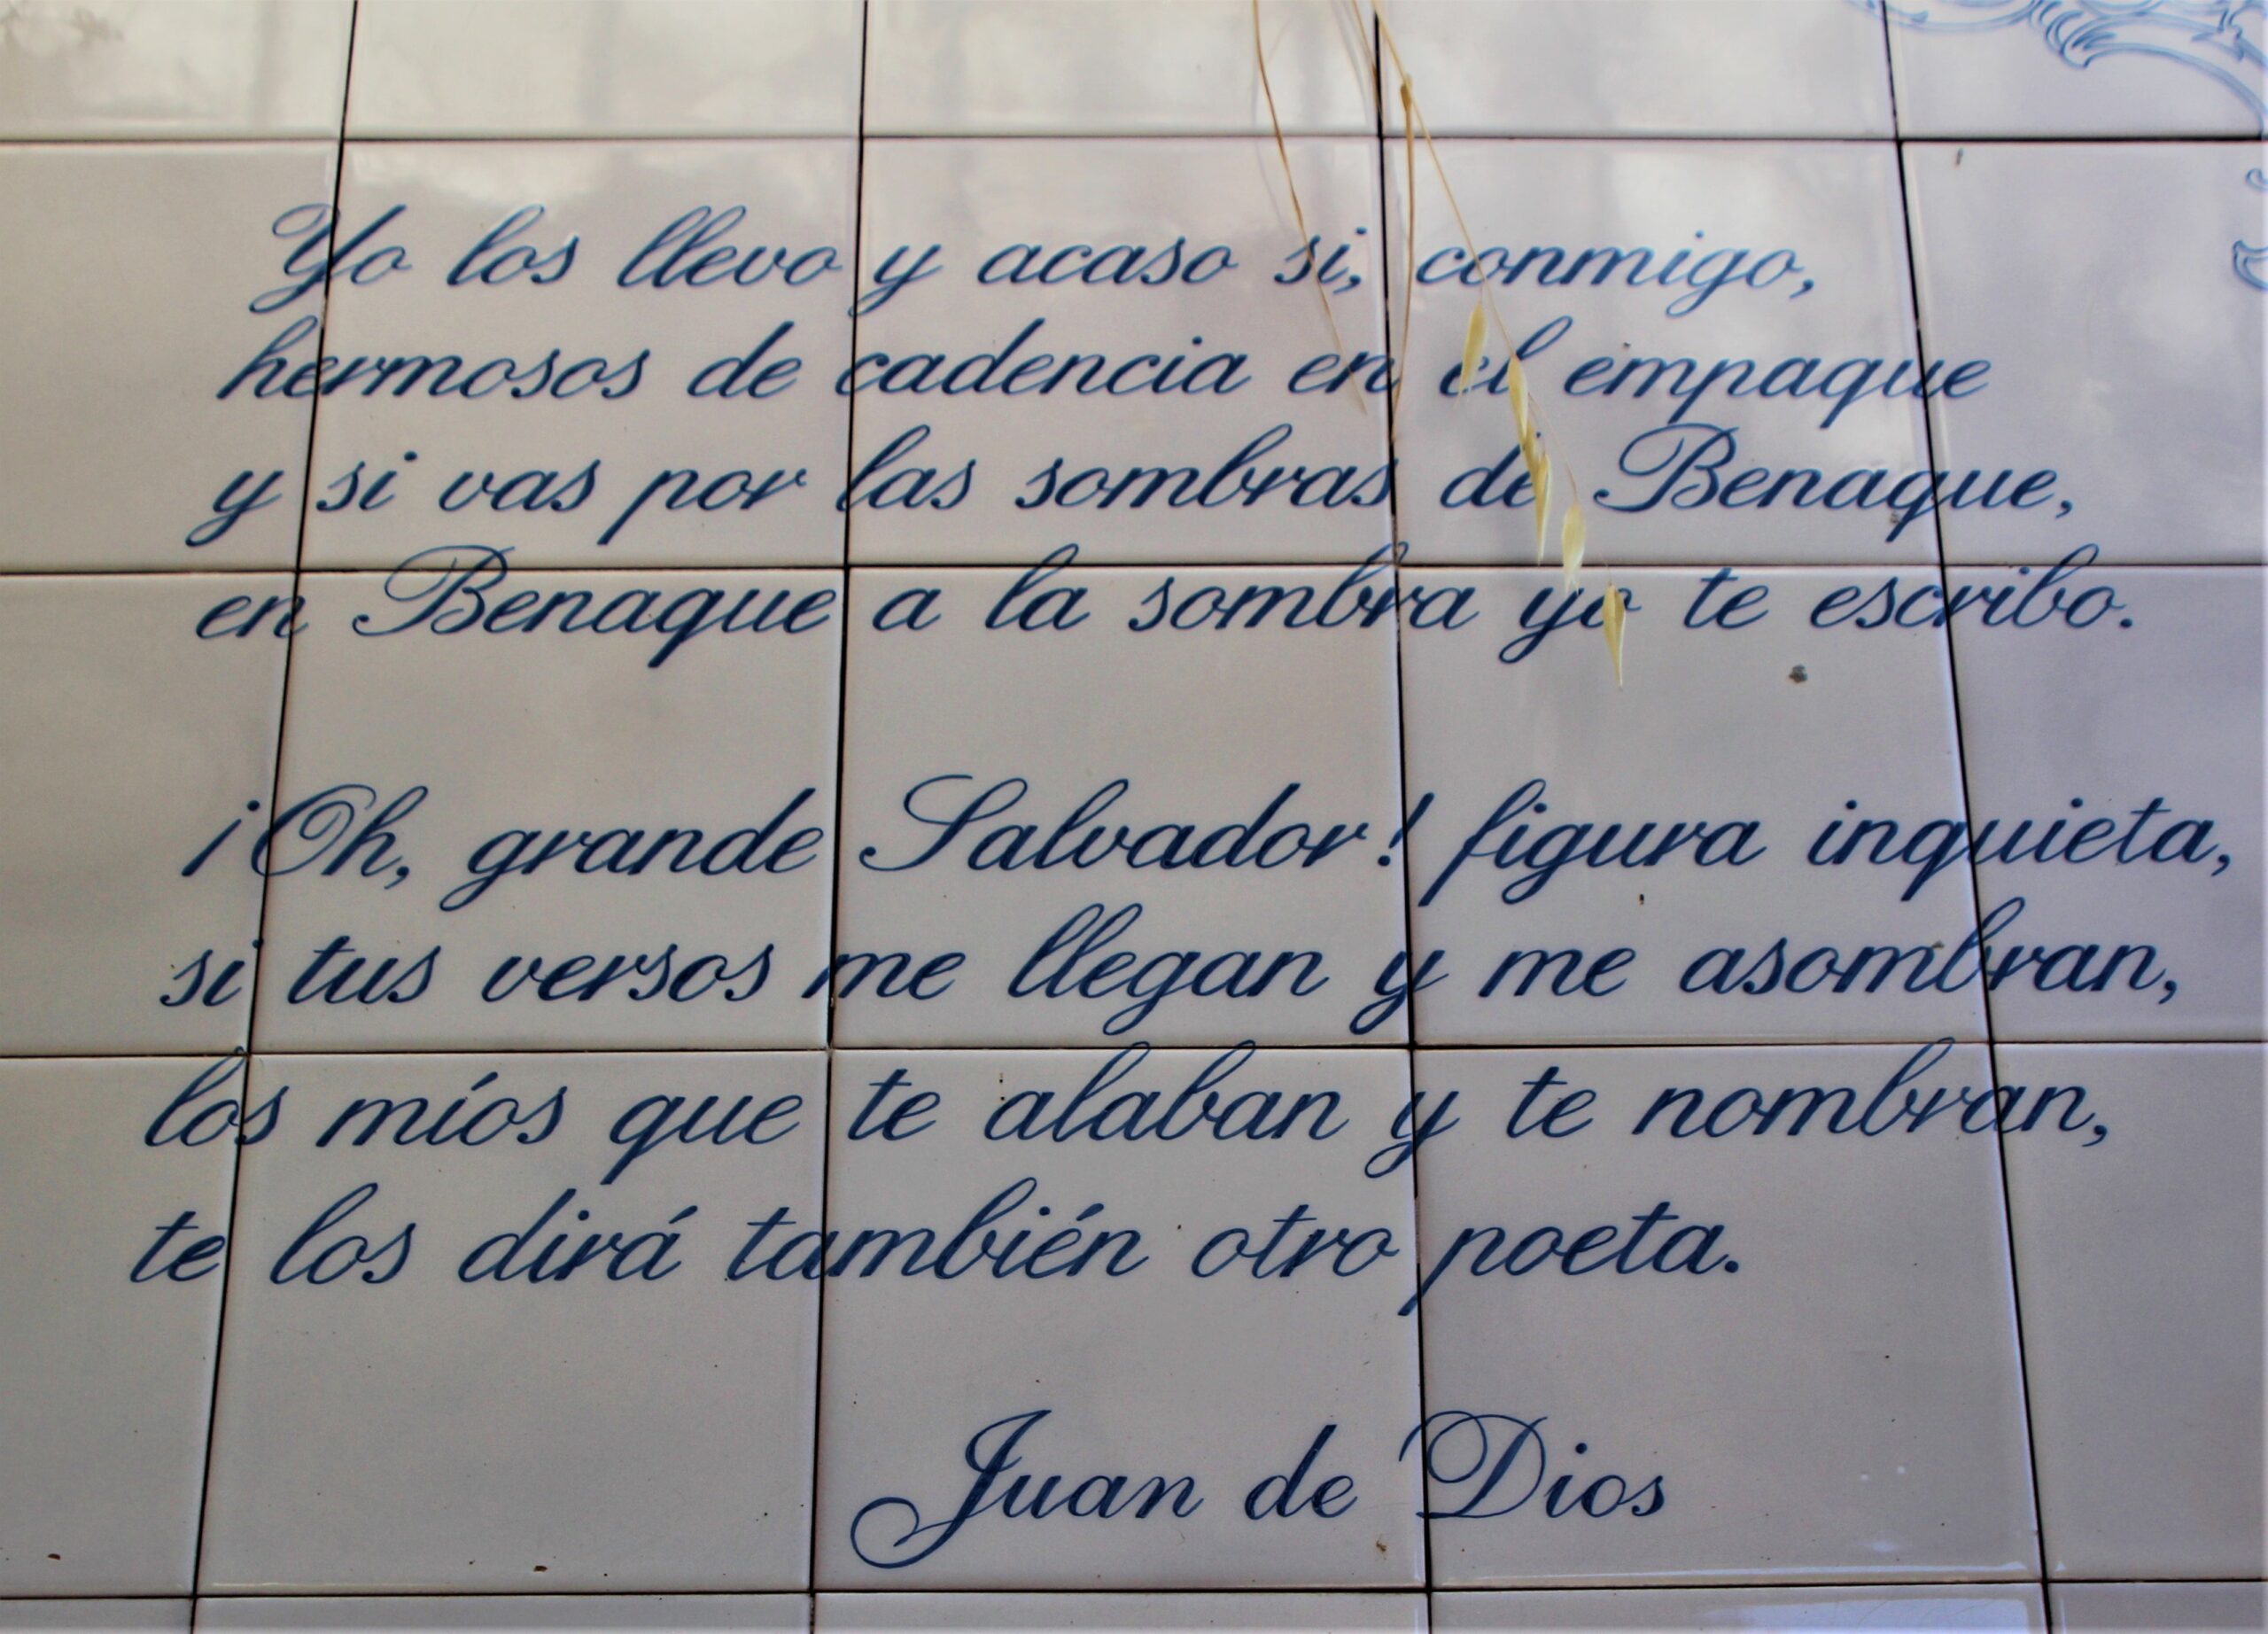 Yo los llevo y acaso si, conmigo,
hermosos de cadencia en el empaque
y si vas por las sombras de Benaque,
en Benaque a la sombra yo te escribo.
¡Oh, grande Salvador! figura inquieta,
si tus versos me llegan y me asombran,
los míos que te alaban y te nombran,
te los dirá también otro poeta.
Juan de Dios